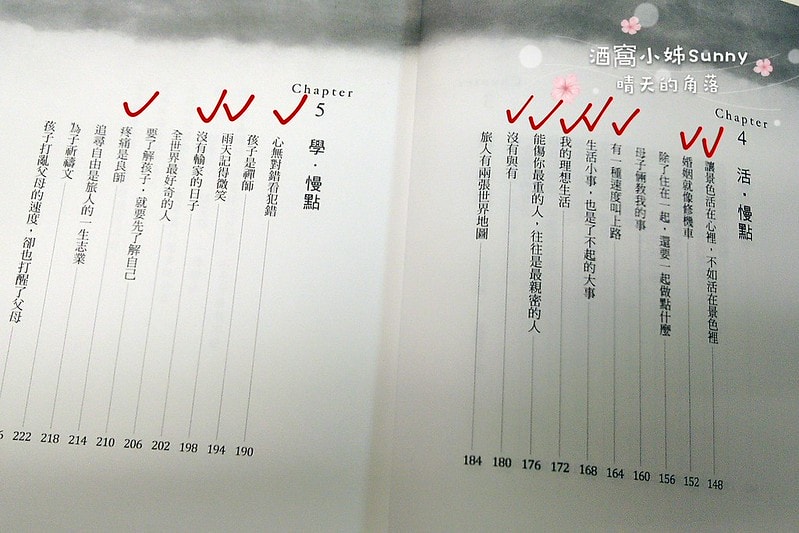 酒窩小姊Sunny
晴天的角落
Chapter 4
活・慢點
讓景色活在心裡，不如活在景色裡 148
婚姻就像修機車 152
除了住在一起，還要一起做點什麼 156
母子倆教我的事 160
有一種速度叫上路 164
生活小事，也是了不起的大事 168
我的理想生活 172
能傷你最重的人，往往是最親密的人 176
沒有與有 180
旅人有兩張世界地圖 184
Chapter 5
學・慢點
心無對錯看犯錯
孩子是禪師 190
雨天記得微笑 194
沒有輸家的日子 198
全世界最好奇的人 202
要了解孩子，就要先了解自己 206
疼痛是良師 210
追尋自由是旅人的一生志業 214
為子祈禱文 218
孩子打亂父母的速度，卻也打醒了父母 222